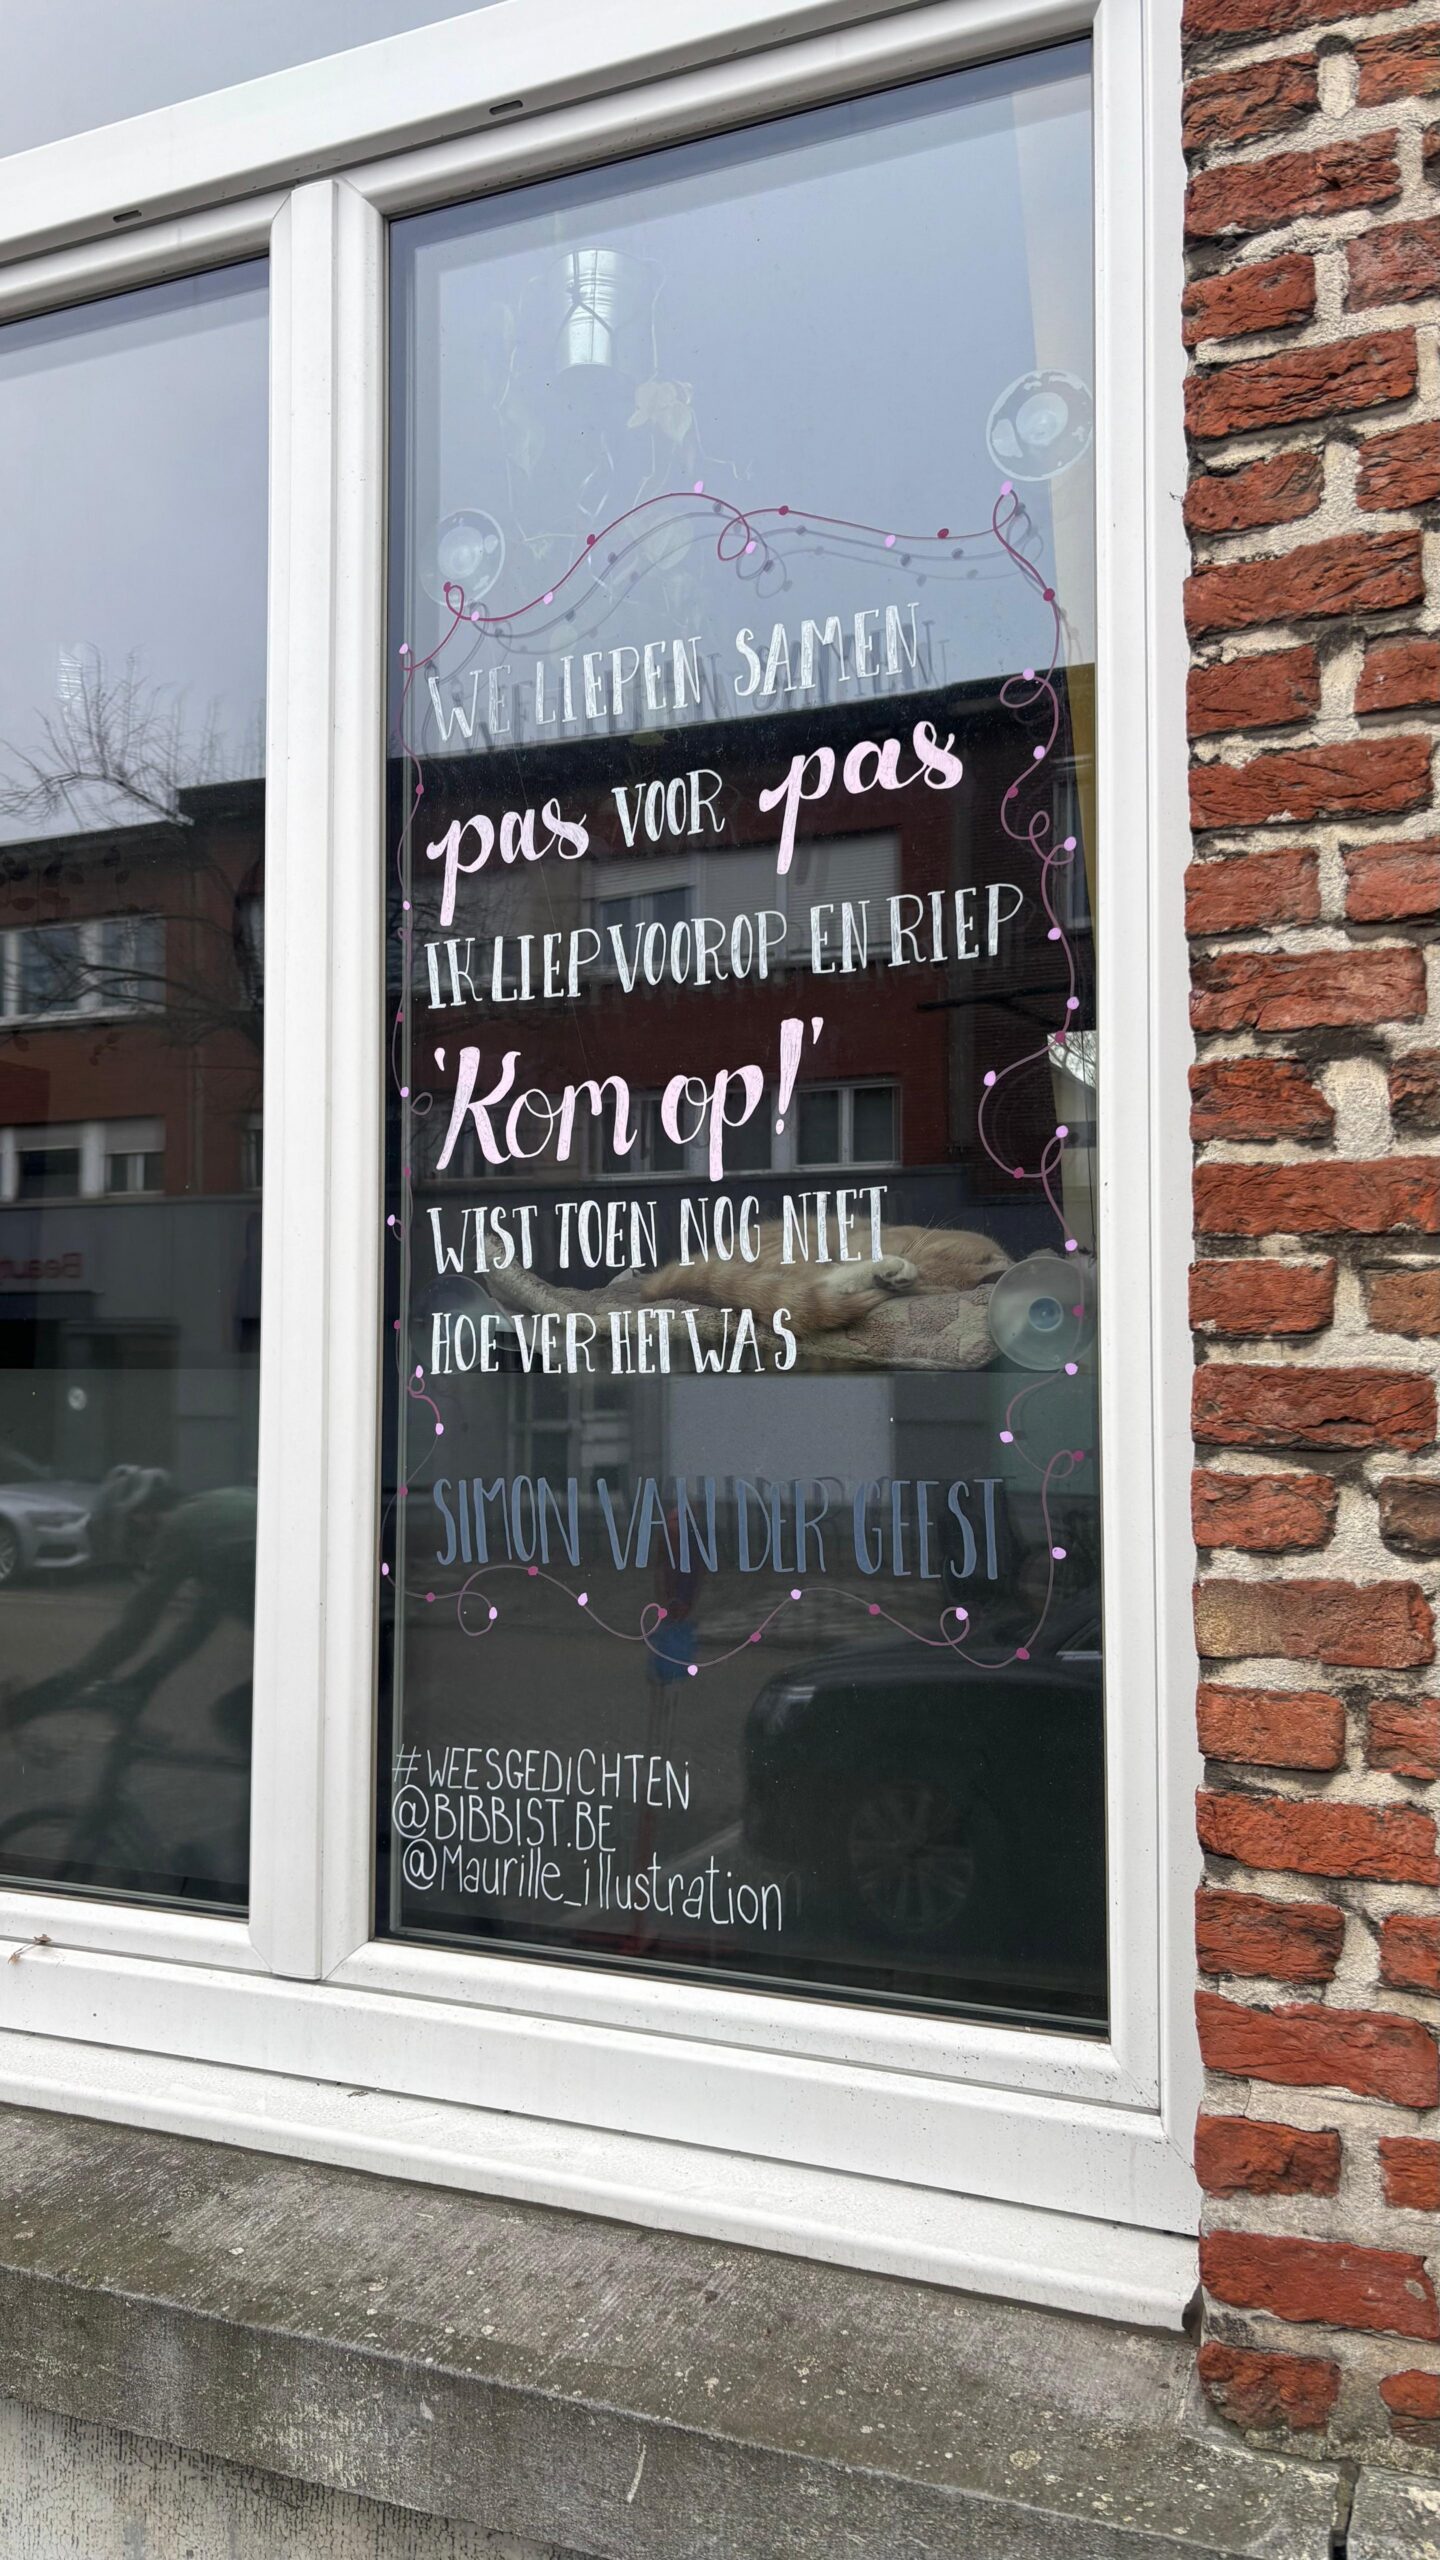 WE LIEPEN SAMEN
pas VOOR pas
IK LIEP VOOROP EN RIEP
'Kom op!'
WIST TOEN NOG NIET
HOE VER HET WAS
SIMON VAN DER GEEST
#WEESGEDICHTEN
@BIBBIST.BE
@Maurille_illustration